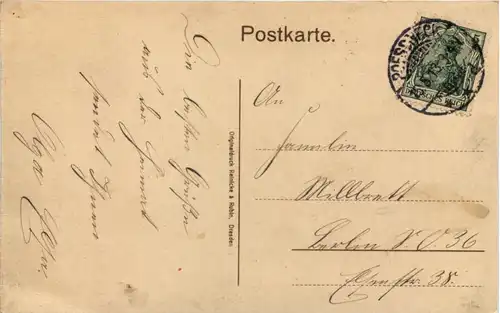 Postkarte.
Die besten Grüße
aus der Heimat
sendet Ihnen
Olga
An
Familie
Millbrett
Berlin S. O. 36
Elsenstr. 38.
Originaldruck Reinicke & Rubin, Dresden.
DEUTSCHES REICH